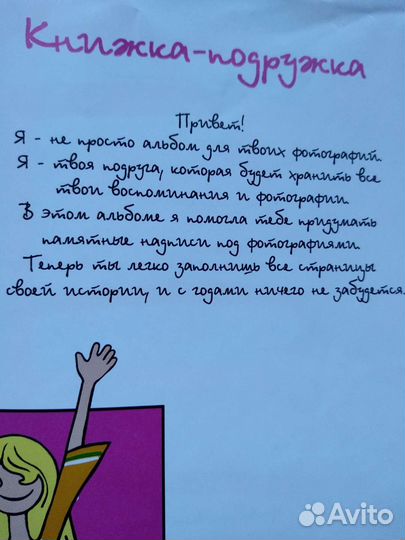 Книжка-подружка
Привет!
Я - не просто альбом для твоих фотографий.
Я - твоя подруга, которая будет хранить все
твои воспоминания и фотографии.
В этом альбоме я помогла тебе придумать
памятные надписи под фотографиями.
Теперь ты легко заполнишь все страницы
своей истории, и с годами ничего не забудется.
Avito